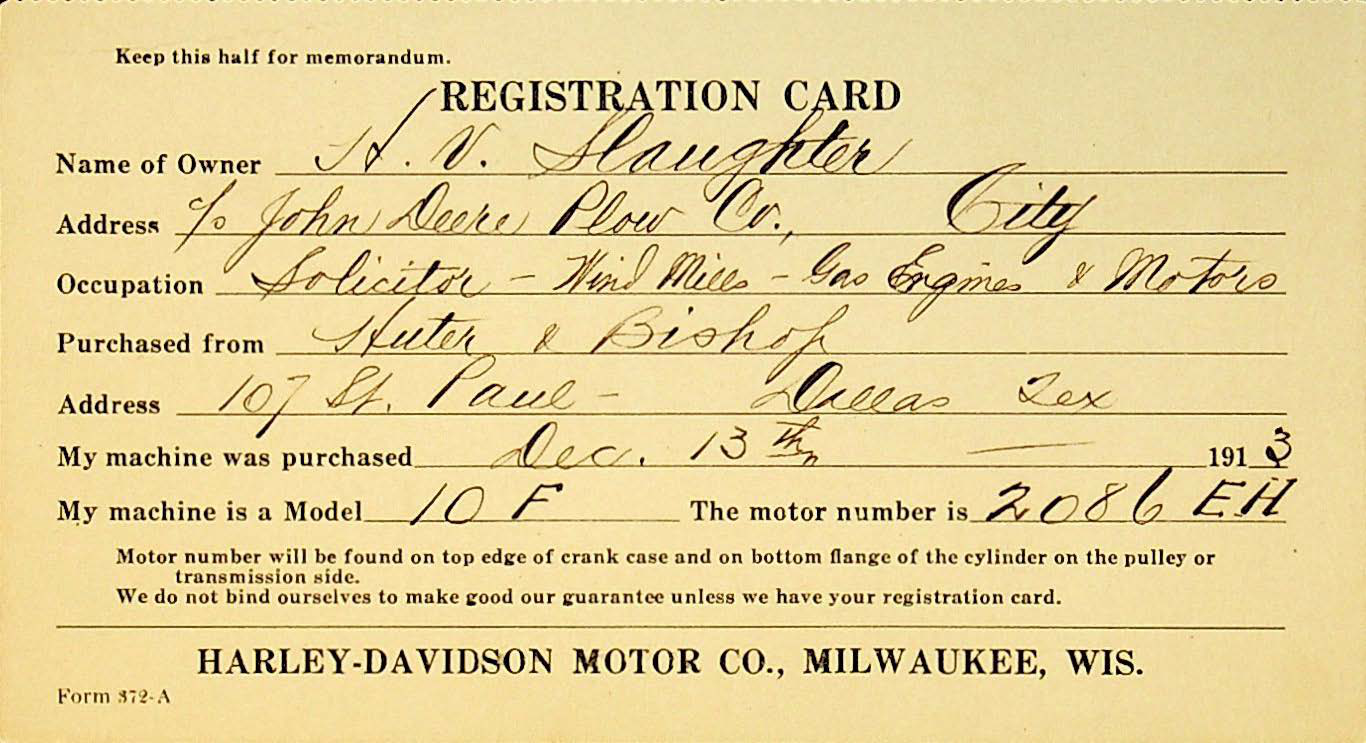 Keep this half for memorandum.
REGISTRATION CARD
Name of Owner H. V. Slaughter
Address c/o John Deere Plow Co., City
Occupation Solicitor - Wind Mills - Gas Engines & Motors
Purchased from Huter & Bishop
Address 107 St. Paul - Dallas Tex
My machine was purchased Dec. 13th — 1913
My machine is a Model 10 F The motor number is 2086 EH
Motor number will be found on top edge of crank case and on bottom flange of the cylinder on the pulley or
transmission side.
We do not bind ourselves to make good our guarantee unless we have your registration card.
HARLEY-DAVIDSON MOTOR CO., MILWAUKEE, WIS.
Form 372-A